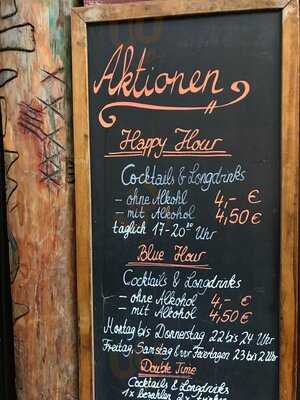 Aktionen
Happy Hour
Cocktails & Longdrinks
- ohne Alkohl 4,- €
- mit Alkohol 4,50 €
täglich 17-20⁰⁰ Uhr
Blue Hour
Cocktails & Longdrinks
- ohne Alkohol 4,- €
- mit Alkohol 4,50 €
Montag bis Donnerstag 22 bis 24 Uhr
Freitag, Samstag & vor Feiertagen 23 bis 2 Uhr
Double Time
Cocktails & Longdrinks
1x bezahlen 2x trinken